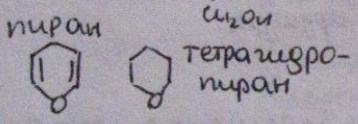 пиран
CH₂OH
тетрагидро-
пиран
O
O